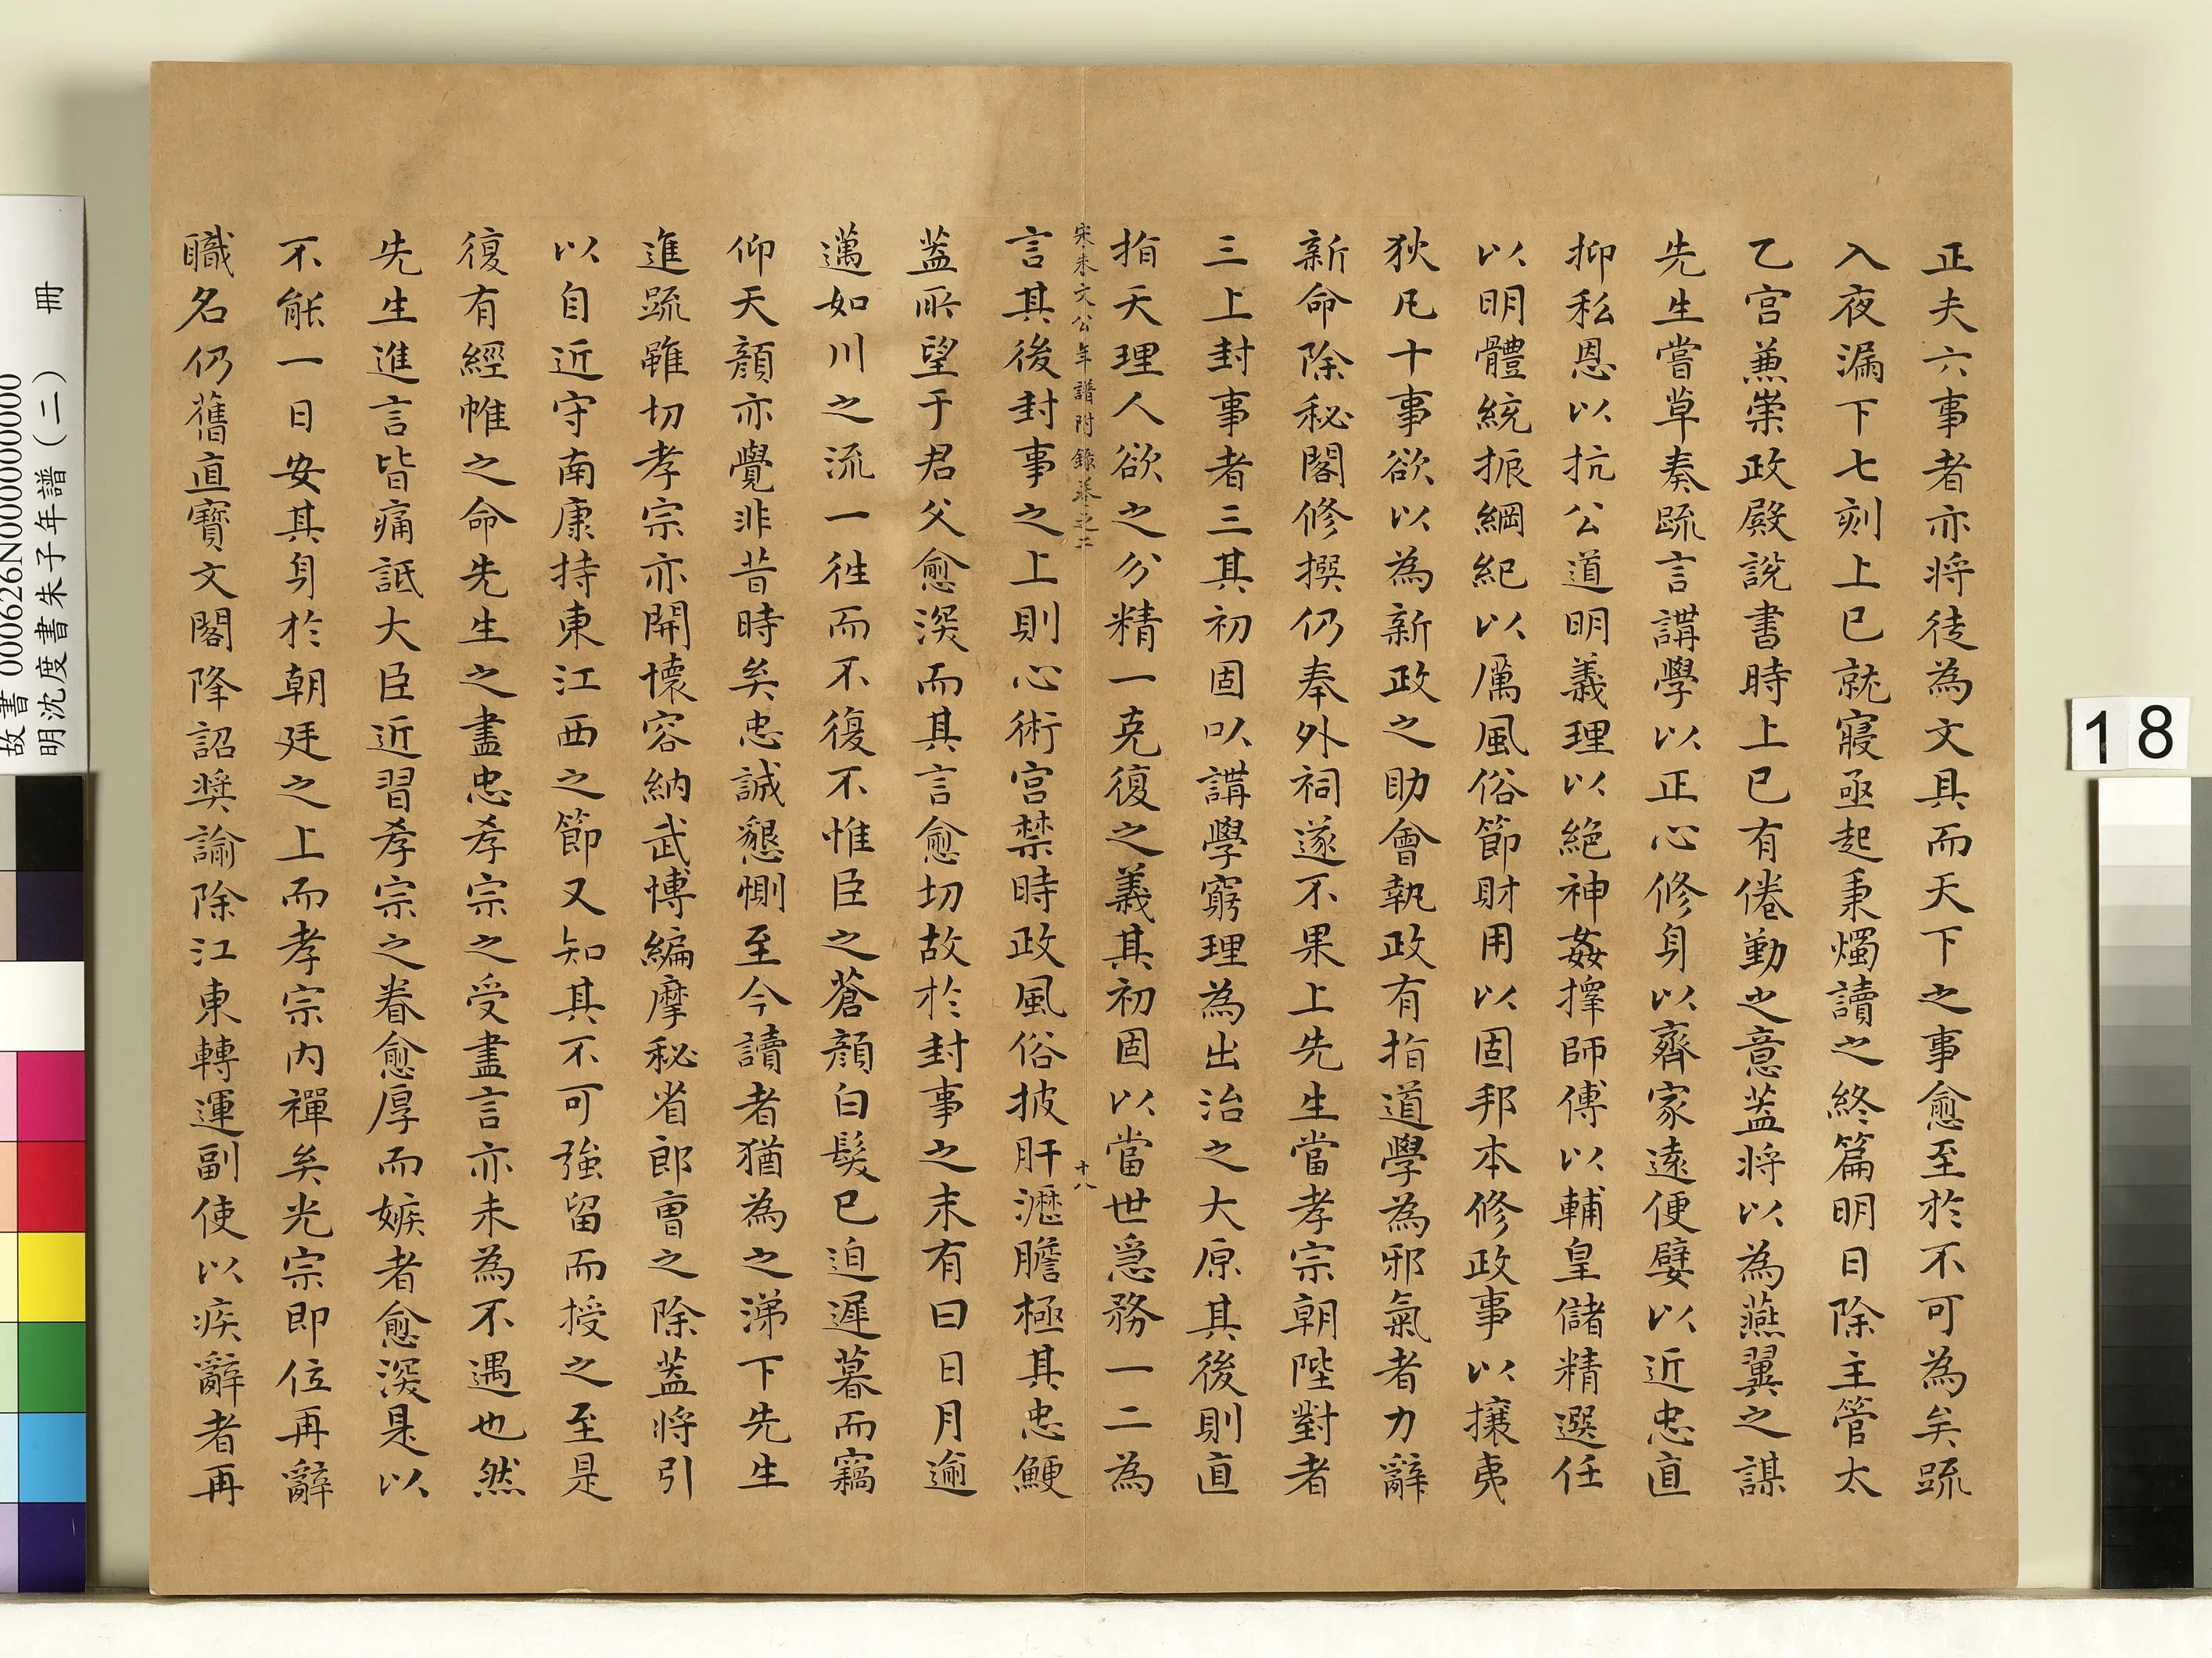 正夫六事者亦將徒為文具而天下之事愈至於不可為矣疏
入夜漏下七刻上已就寢亟起秉燭讀之終篇明日除主管太
乙宮兼崇政殿說書時上已有倦勤之意蓋將以為燕翼之謀
先生嘗草奏疏言講學以正心修身以齊家遠便嬖以近忠直
抑私恩以抗公道明義理以絕神姦擇師傅以輔皇儲精選任
以明體統振綱紀以厲風俗節財用以固邦本修政事以攘夷
狄凡十事欲以為新政之助會執政有指道學為邪氣者力辭
新命除秘閣修撰仍奉外祠遂不果上先生當孝宗朝陛對者
三上封事者三其初固以講學窮理為出治之大原其後則直
指天理人欲之分精一克復之義其初固以當世急務一二為
宋朱文公年譜附錄卷之二 十八
言其後封事之上則心術宮禁時政風俗披肝瀝膽極其忠鯁
蓋所望于君父愈深而其言愈切故於封事之末有曰日月逾
邁如川之流一往而不復不惟臣之蒼顏白髮已迫遲暮而竊
仰天顏亦覺非昔時矣忠誠懇惻至今讀者猶為之涕下先生
進疏雖切孝宗亦開懷容納武博編摩秘省郎曹之除蓋將引
以自近守南康持東江西之節又知其不可強留而授之至是
復有經帷之命先生之盡忠孝宗之受盡言亦未為不遇也然
先生進言皆痛詆大臣近習孝宗之眷愈厚而嫉者愈深是以
不能一日安其身於朝廷之上而孝宗內禪矣光宗即位再辭
職名仍舊直寶文閣降詔獎諭除江東轉運副使以疾辭者再
故書 000626N000000000
明沈度書朱子年譜(二) 冊
18